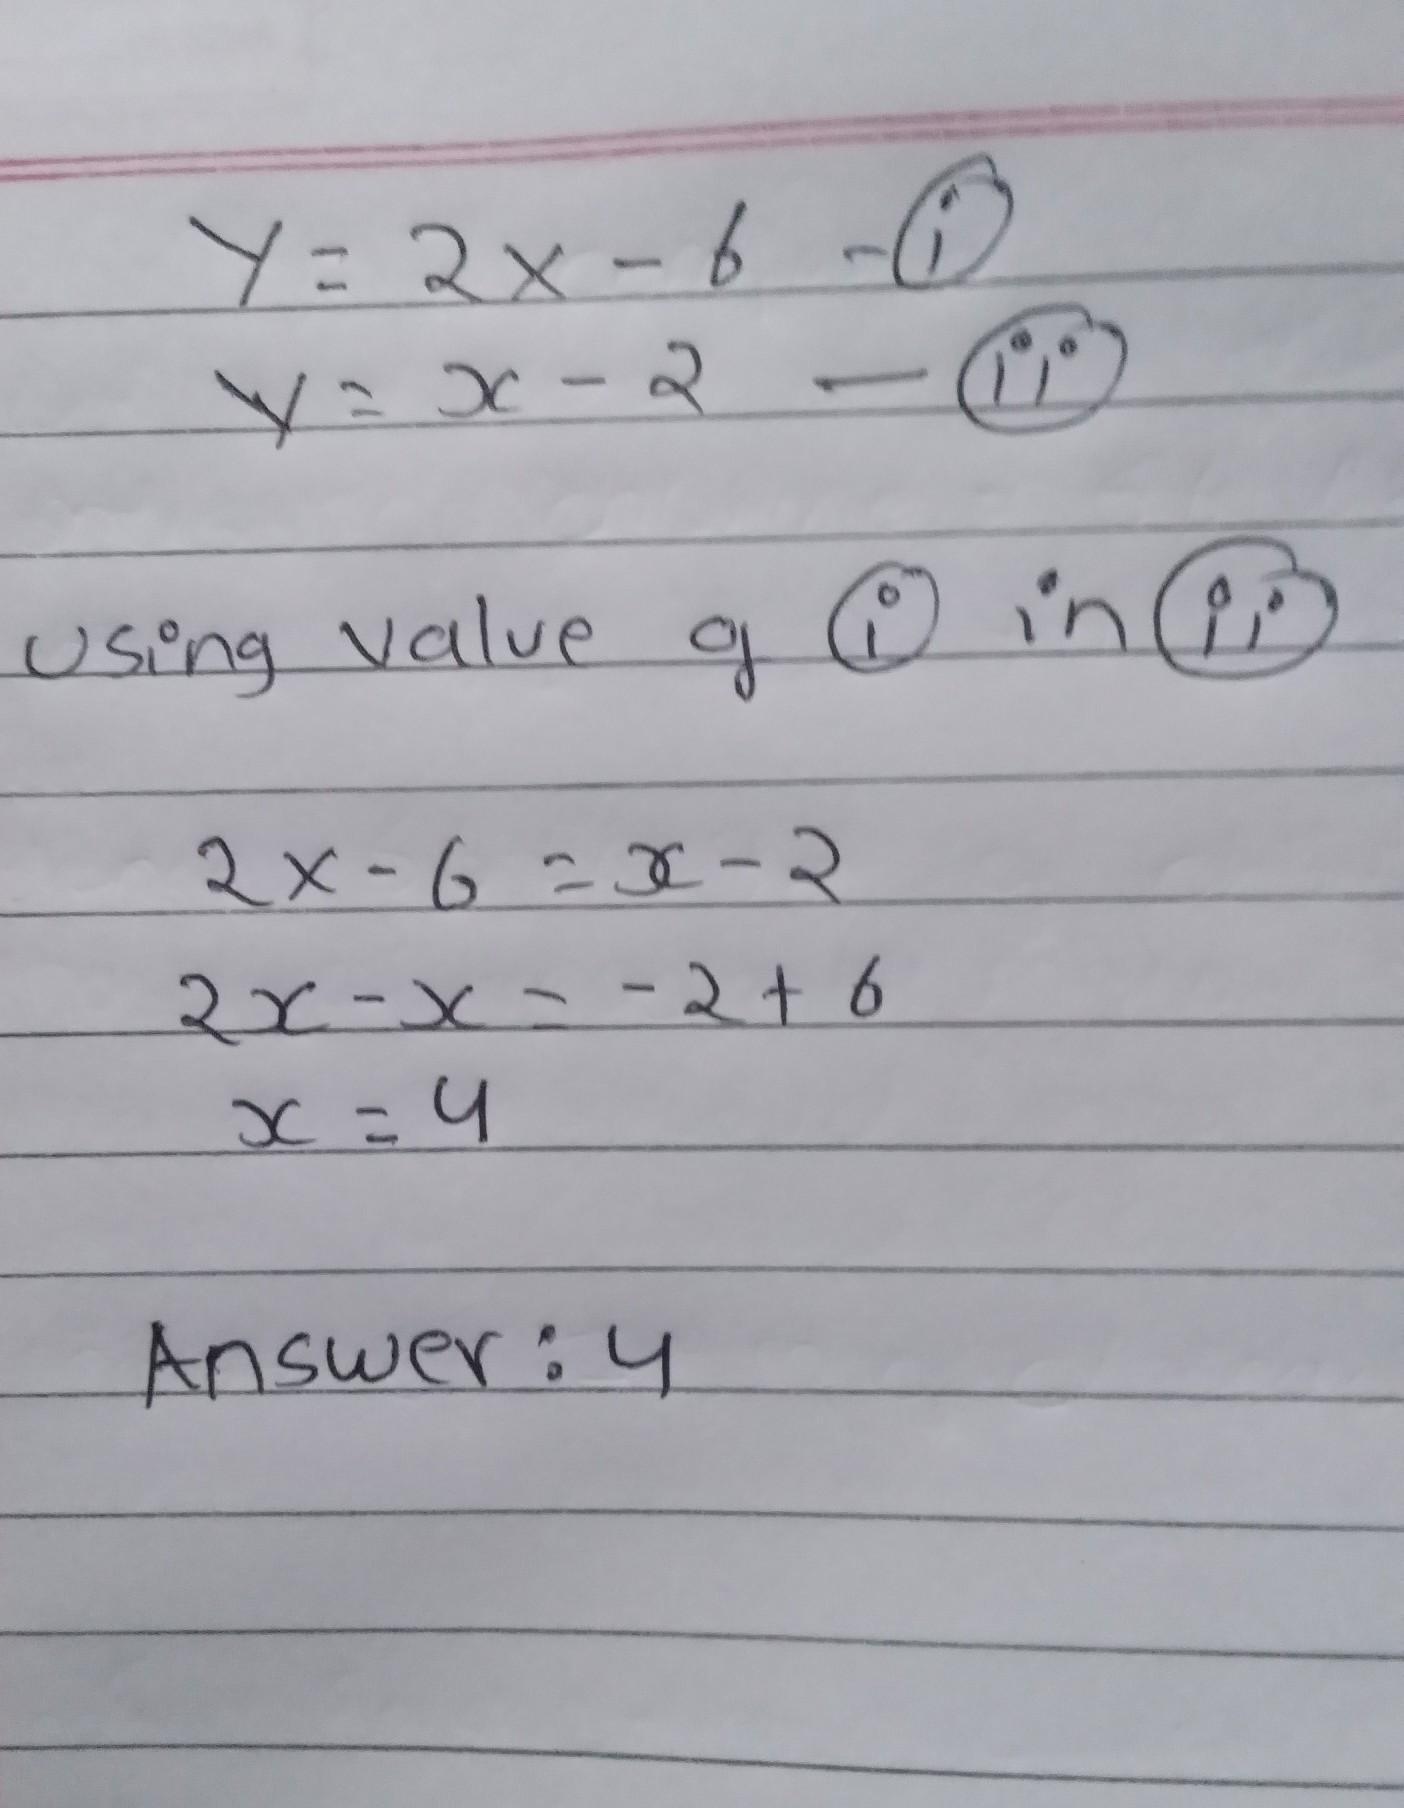 Y = 2x - 6 - (i)
Y = x - 2 — (ii)
Using value of (i) in (ii)
2x - 6 = x - 2
2x - x = -2 + 6
x = 4
Answer : 4